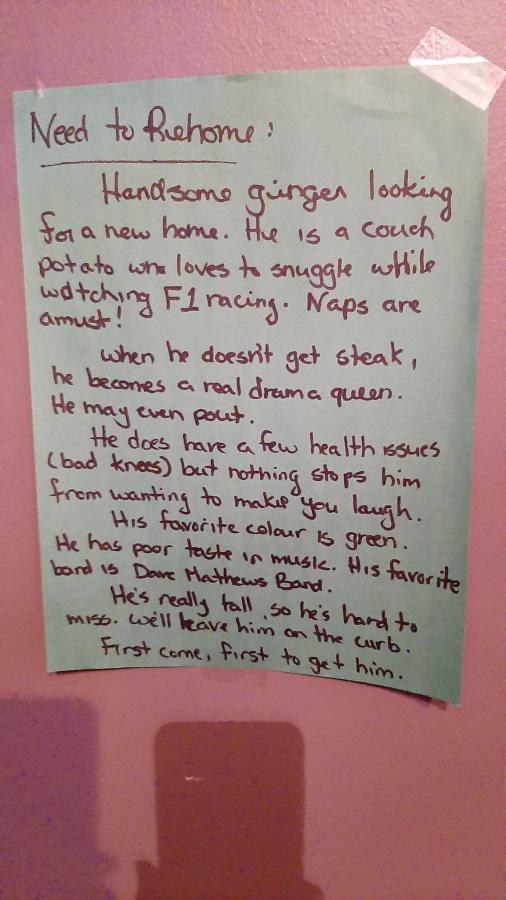 Need to Rehome:
Handsome ginger looking
for a new home. He is a couch
potato who loves to snuggle while
watching F1 racing. Naps are
amust!
when he doesn't get steak,
he becomes a real drama queen.
He may even pout.
He does have a few health issues
(bad knees) but nothing stops him
from wanting to make you laugh.
His favorite colour is green.
He has poor taste in music. His favorite
band is Dave Mathews Band.
He's really tall, so he's hard to
miss. we'll leave him on the curb.
First come, first to get him.